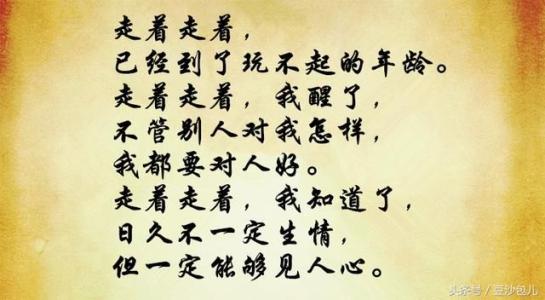 走着走着，
已经到了玩不起的年龄。
走着走着，我醒了，
不管别人对我怎样，
我都要对人好。
走着走着，我知道了，
日久不一定生情，
但一定能够见人心。
头条号／豆沙包儿